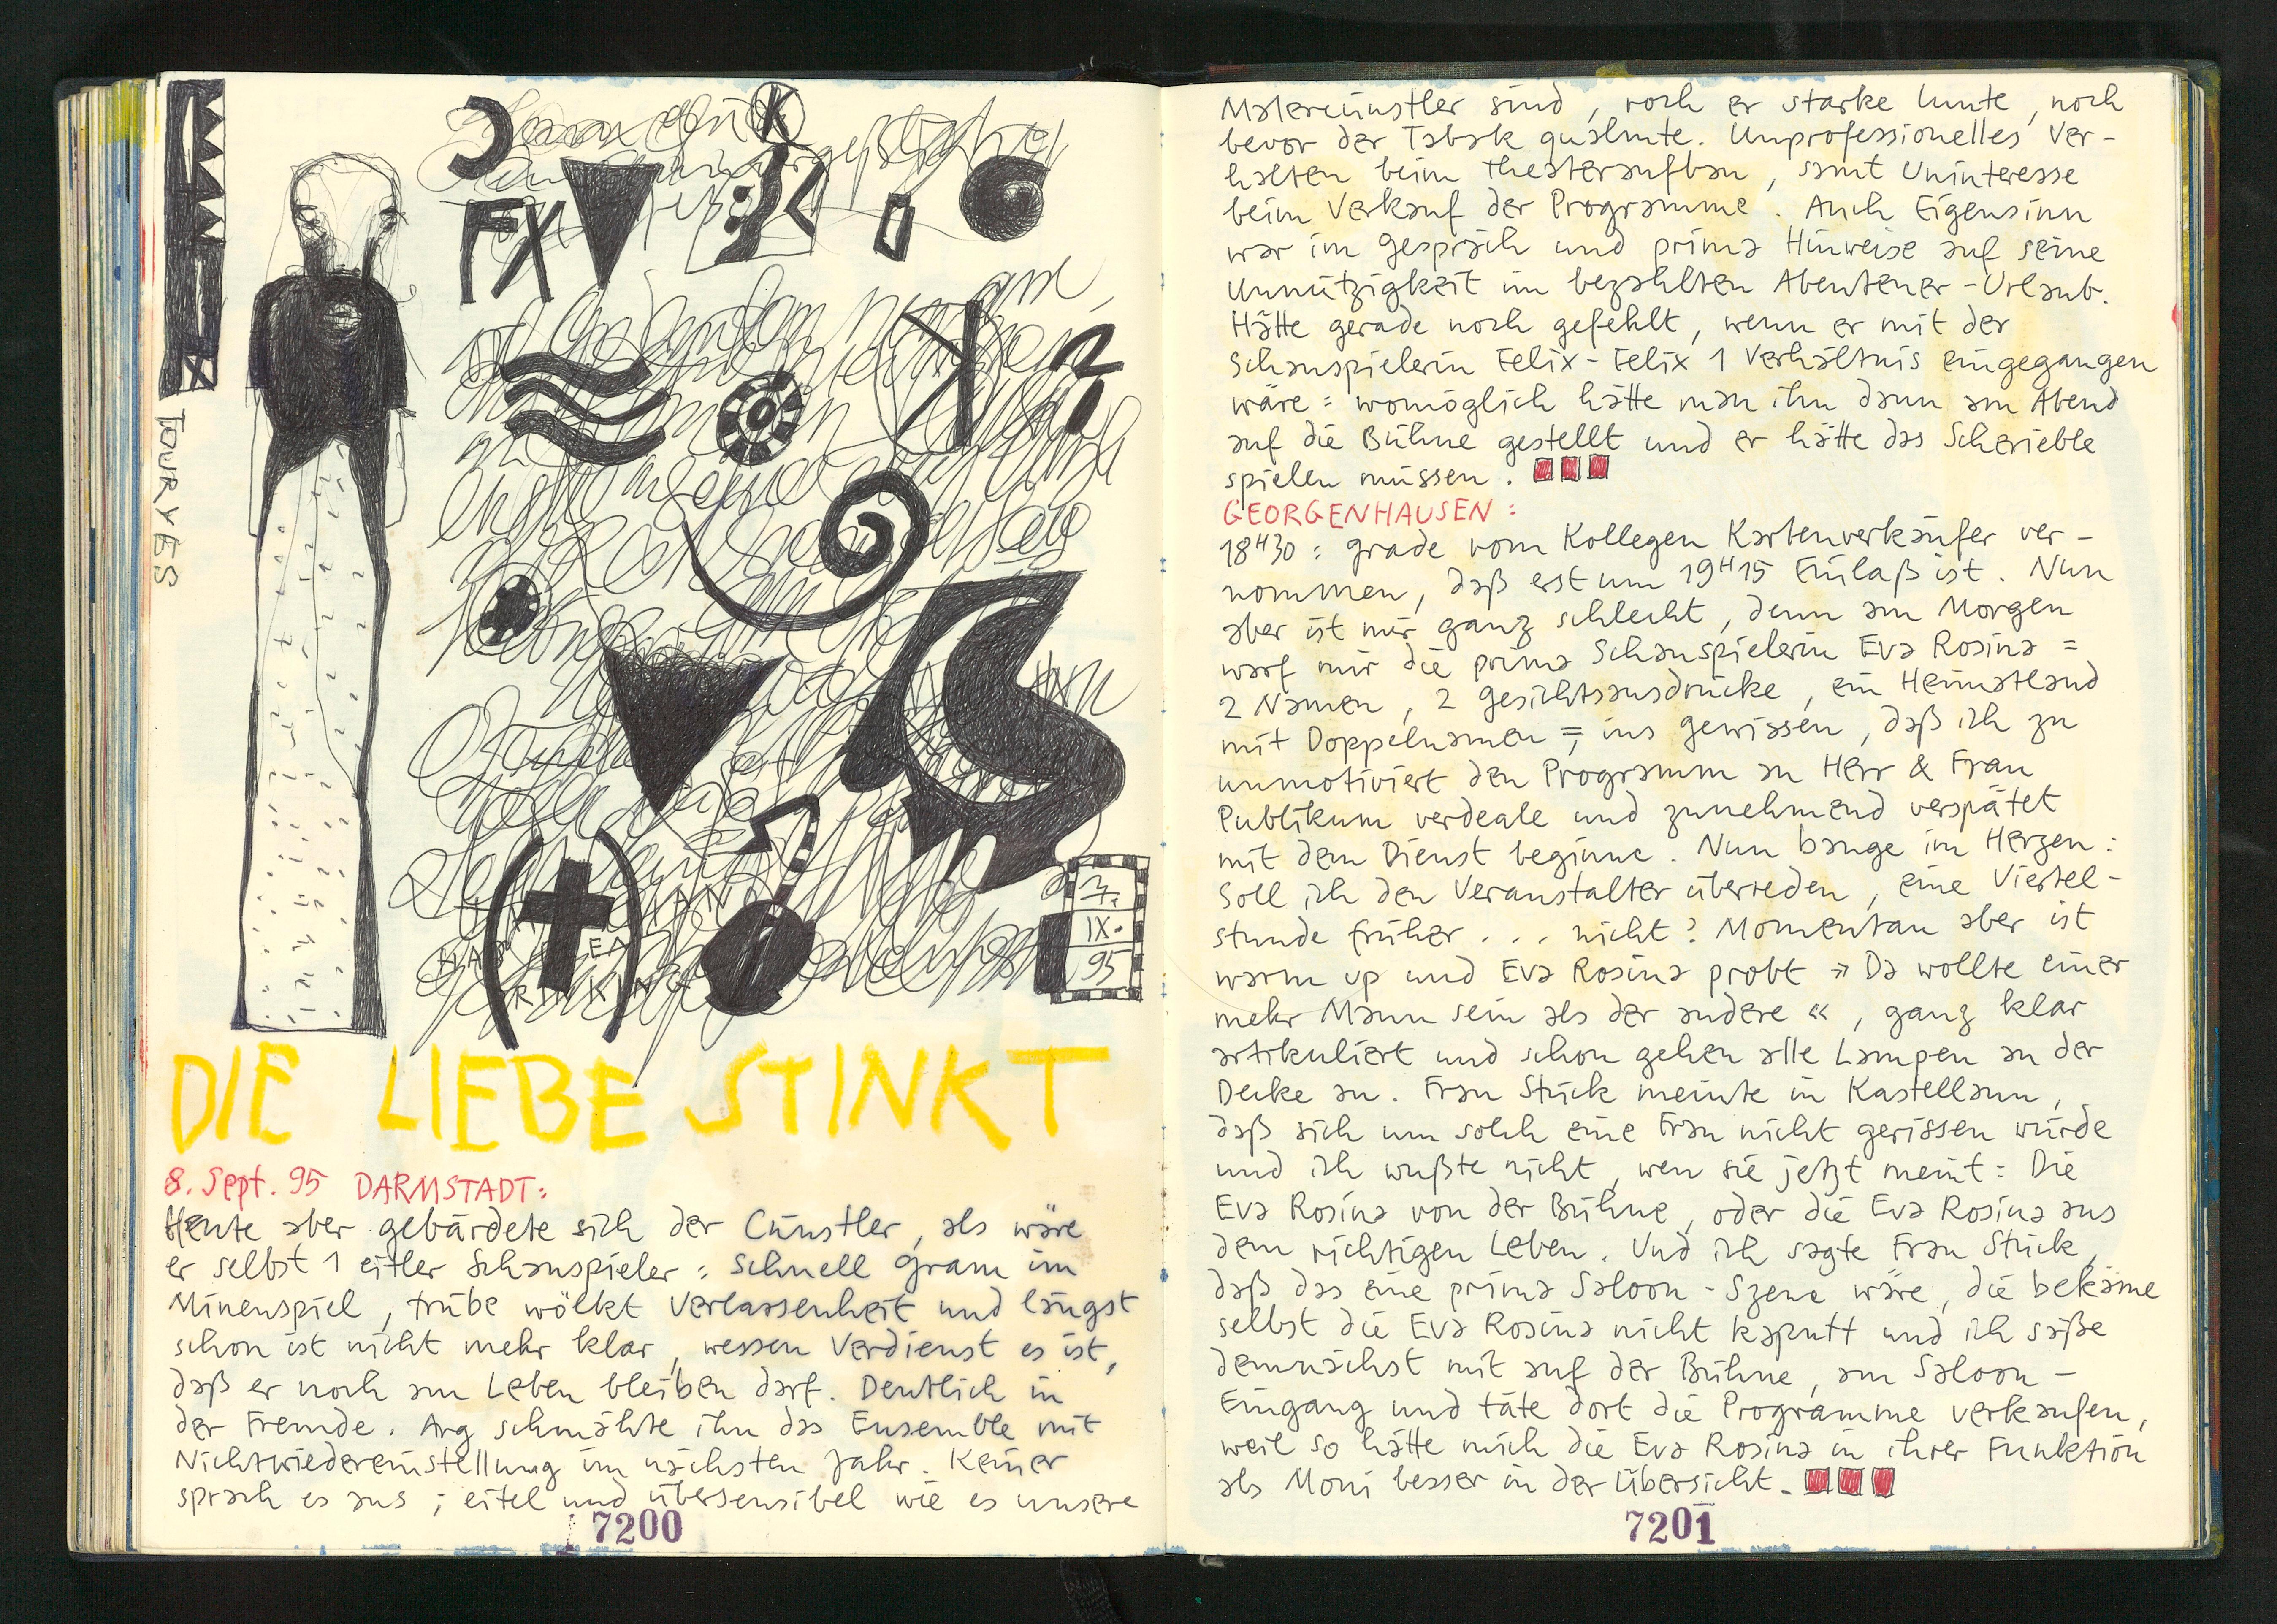 TOURYES
FX
7.
IX.
95
DIE LIEBE STINKT
8. Sept. 95 DARMSTADT:
Heute aber gebärdete sich der Cünstler, als wäre
er selbst 1 eitler Schauspieler: Schnell Gram im
Minenspiel, trübe wölkt Verlassenheit und längst
schon ist nicht mehr klar, wessen Verdienst es ist,
daß er noch am Leben bleiben darf. Deutlich in
der Fremde. Arg schmähte ihn das Ensemble mit
Nichtwiedereinstellung im nächsten Jahr. Keiner
sprach es aus; eitel und übersensibel wie es unsere
7200
Malercünstler sind, roch er starke Lunte, noch
bevor der Tabak qualmte. Unprofessionelles Ver-
halten beim Theateraufbau, samt Uninteresse
beim Verkauf der Programme. Auch Eigensinn
war im Gespräch und prima Hinweise auf seine
Unnützigkeit im bezahlten Abenteuer-Urlaub.
Hätte gerade noch gefehlt, wenn er mit der
Schauspielerin Felix-Felix 1 Verhältnis eingegangen
wäre: womöglich hätte man ihn dann am Abend
auf die Bühne gestellt und er hätte das Scherieble
spielen müssen.
GEORGENHAUSEN:
18H30: grade vom Kollegen Kartenverkäufer ver-
nommen, daß erst um 19H15 Einlaß ist. Nun
aber ist mir ganz schlecht, denn am Morgen
warf mir die prima Schauspielerin Eva Rosina =
2 Namen, 2 Gesichtsausdrücke, ein Heimatland
mit Doppelnamen =, ins Gewissen, daß ich zu
unmotiviert den Programm an Herr & Frau
Publikum verdeale und zunehmend verspätet
mit dem Dienst beginne. Nun bange im Herzen:
Soll ich den Veranstalter überreden, eine Viertel-
stunde früher ... nicht? Momentan aber ist
warm up und Eva Rosina probt »Da wollte einer
mehr Mann sein als der andere«, ganz klar
artikuliert und schon gehen alle Lampen an der
Decke an. Frau Stück meinte in Kastellaun,
daß sich um solch eine Frau nicht gerissen würde
und ich wußte nicht, wen sie jetzt meint: Die
Eva Rosina von der Bühne, oder die Eva Rosina aus
dem richtigen Leben. Und ich sagte Frau Stück,
daß das eine prima Saloon-Szene wäre, die bekäme
selbst die Eva Rosina nicht kaputt und ich säße
demnächst mit auf der Bühne, am Saloon-
Eingang und täte dort die Programme verkaufen,
weil so hätte mich die Eva Rosina in ihrer Funktion
als Moni besser in der Übersicht.
7201